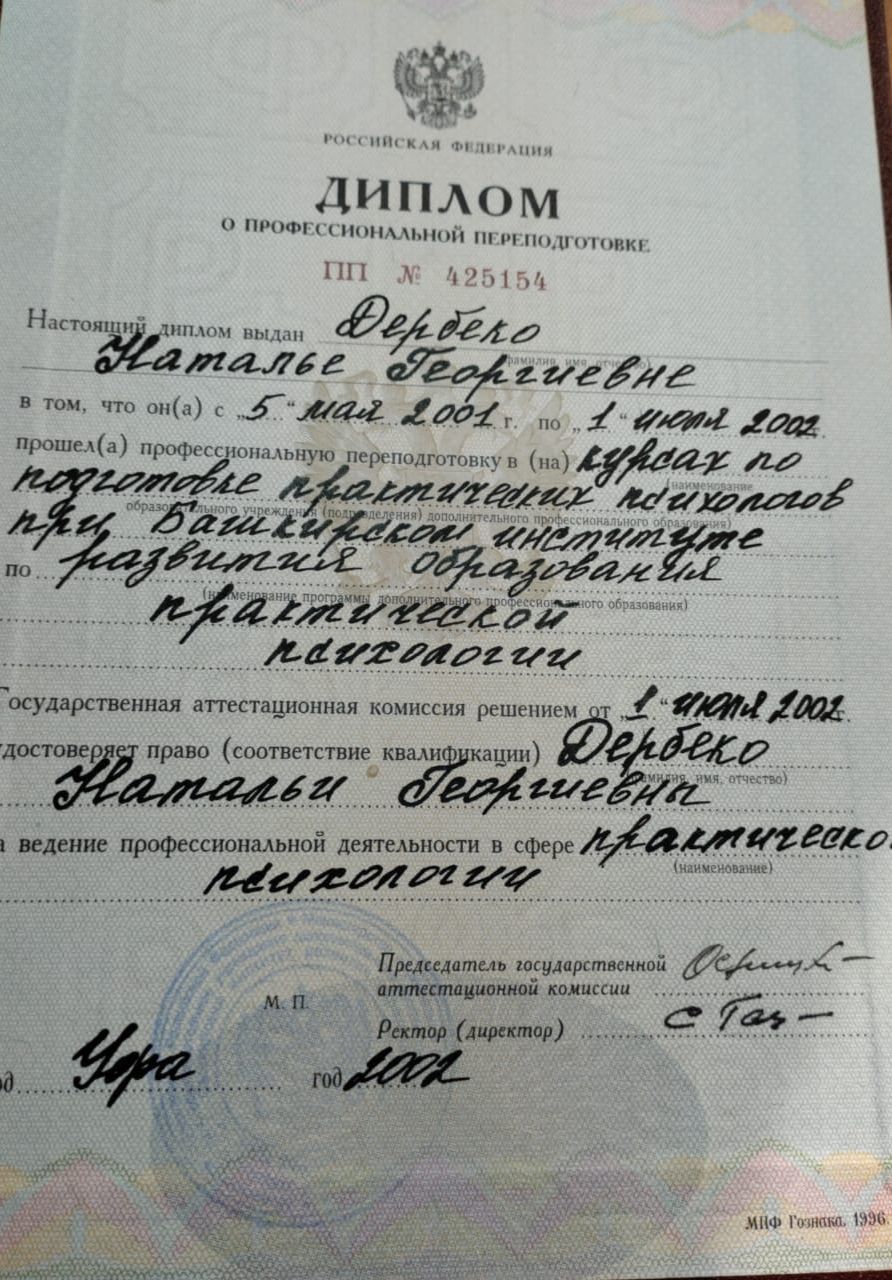 РОССИЙСКАЯ ФЕДЕРАЦИЯ
ДИПЛОМ
О ПРОФЕССИОНАЛЬНОЙ ПЕРЕПОДГОТОВКЕ
ПП № 425154
Настоящий диплом выдан Дербеко
(фамилия, имя, отчество)
Наталье Георгиевне
в том, что он(а) с „5“ мая 2001 г. по „1“ июля 2002 г.
прошел(а) профессиональную переподготовку в (на) курсах по
(наименование
подготовке практических психологов
образовательного учреждения (подразделения) дополнительного профессионального образования)
при Башкирском институте
по развития образования
(наименование программы дополнительного профессионального образования)
практической
психологии
Государственная аттестационная комиссия решением от „1“ июля 2002 г.
удостоверяет право (соответствие квалификации) Дербеко
(фамилия, имя, отчество)
Натальи Георгиевны
а ведение профессиональной деятельности в сфере практическо
(наименование)
психологии
Председатель государственной
аттестационной комиссии
М. П.
Ректор (директор)
од Уфа год 2002
МПФ Гознака. 1996.